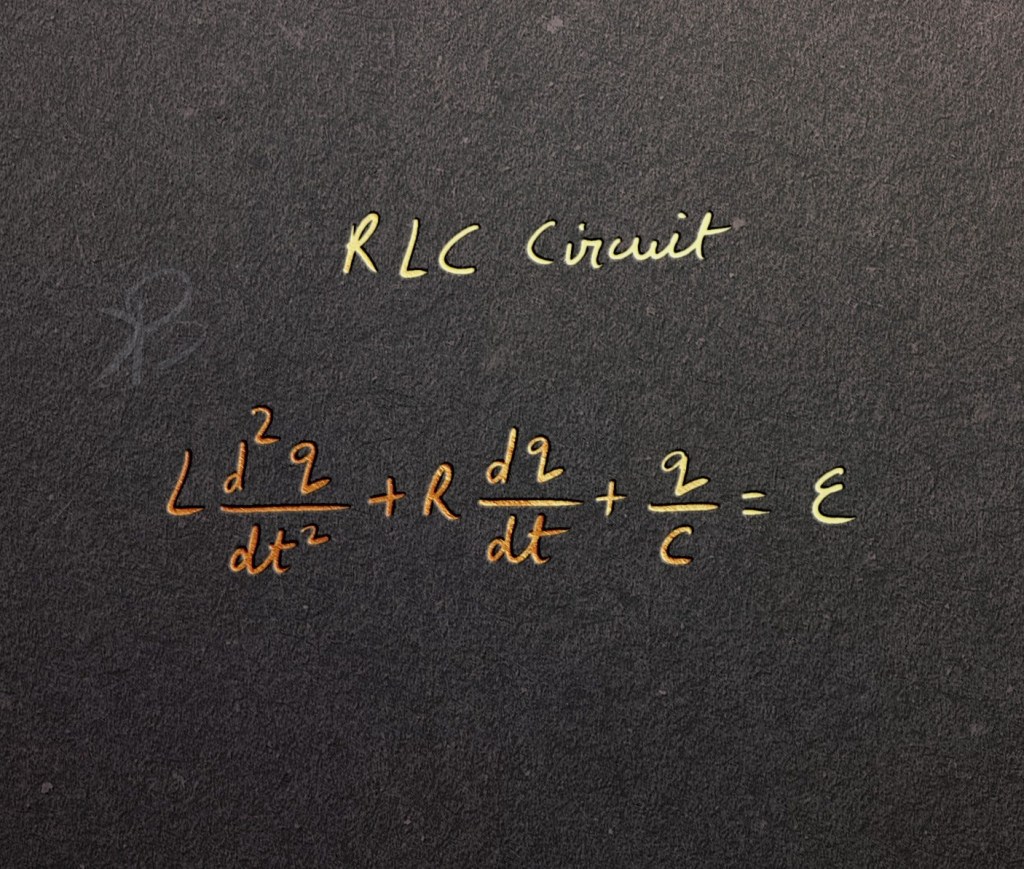 RLC Circuit
L d²q/dt² + R dq/dt + q/C = ε